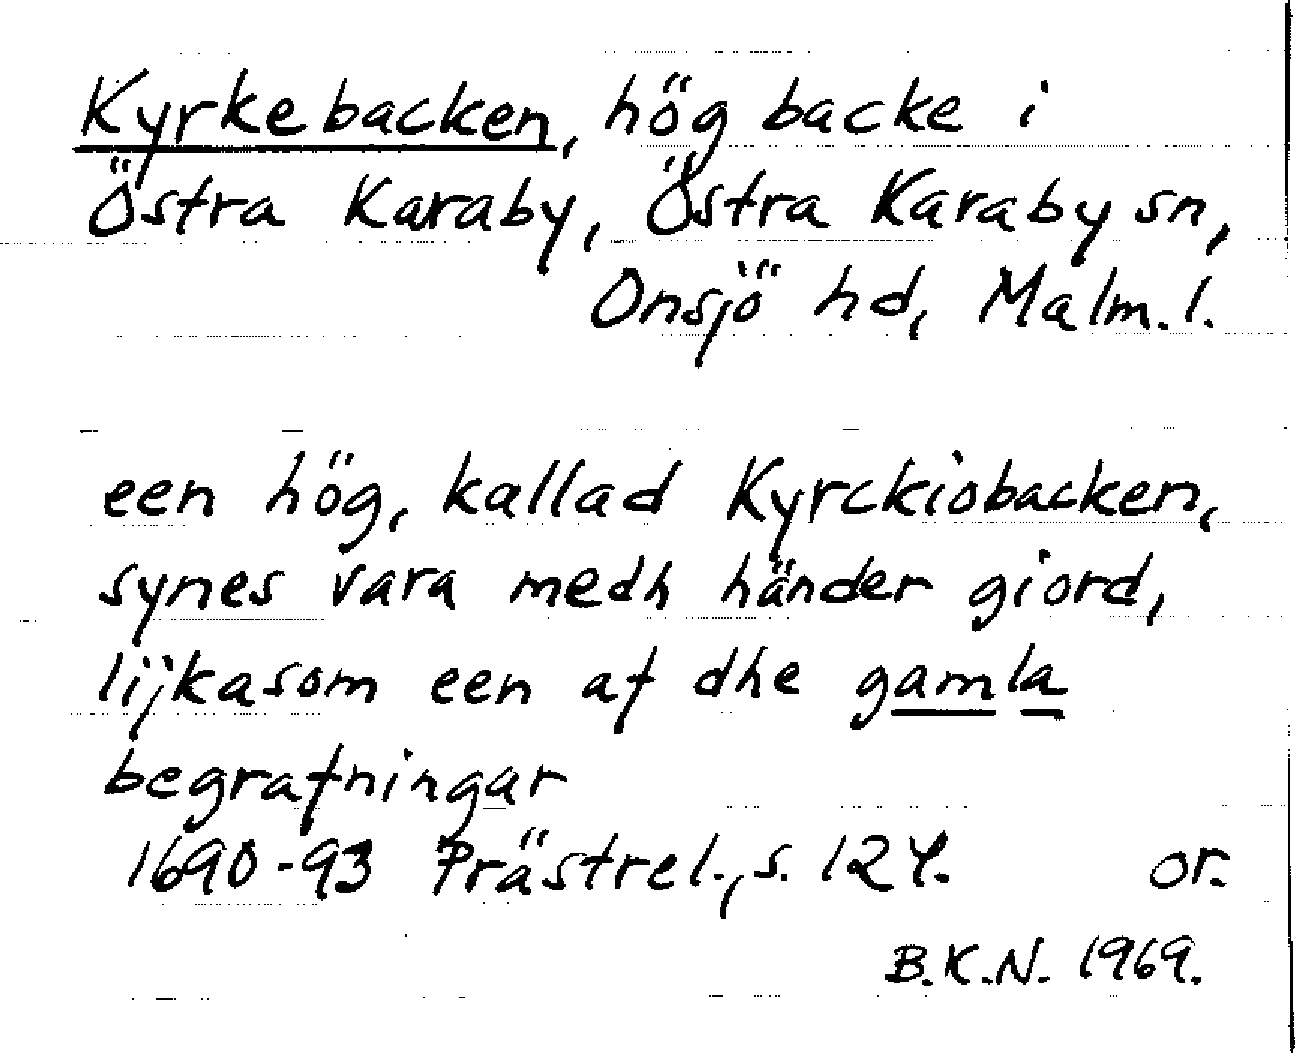 Kyrkebacken, hög backe i
Östra Karaby, Östra Karaby sn,
Onsjö hd, Malm. l.
een hög, kallad Kyrckiobacken,
synes vara medh händer giord,
lijkasom een af dhe gamla
begrafningar
1690-93 Prästrel., s. 124. or.
B.K.N. 1969.